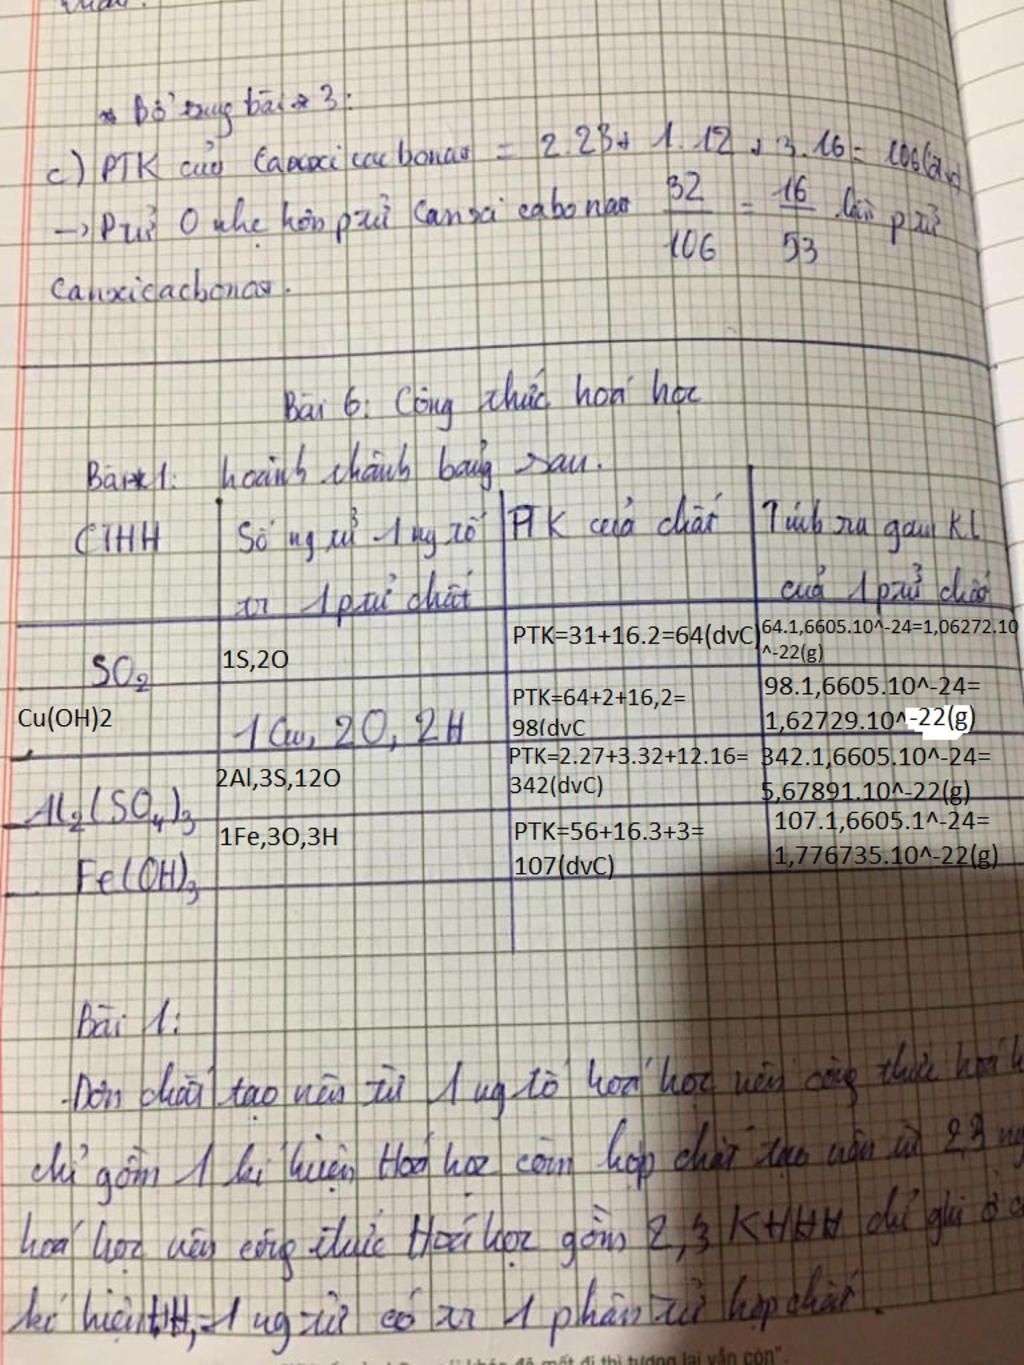 * Bổ sung bài * 3:
c) PTK của Canxicacbonat = 2.23+ 1.12 + 3.16 = 106(đvC)
-> Ptử O nhẹ hơn ptử Canxi cabonat 32/106 = 16/53 lần ptử
Canxicacbonat.
Bài 6: Công thức hoá học
Bài 1: hoành thành bảng sau.
CTHH | Số ng tử 1 ng tố | PTK của chất | Tính ra gam KL
tr 1 ptử chất | của 1 ptử chất
SO2 | 1S,2O | PTK=31+16.2=64(dvC) | 64.1,6605.10^-24=1,06272.10
^-22(g)
Cu(OH)2 | 1 Cu, 2O, 2H | PTK=64+2+16,2= | 98.1,6605.10^-24=
98(dvC | 1,62729.10^-22(g)
Al2(SO4)3 | 2Al,3S,12O | PTK=2.27+3.32+12.16= | 342.1,6605.10^-24=
342(dvC) | 5,67891.10^-22(g)
Fe(OH)3 | 1Fe,3O,3H | PTK=56+16.3+3= | 107.1,6605.1^-24=
107(dvC) | 1,776735.10^-22(g)
Bài 1:
-Đơn chất tạo nên từ 1 ng tố hoá học nên công thức hoá h
chỉ gồm 1 kí hiện Hoá học còn hợp chất tạo nên từ 2,3 ng
hoá học nên công thức Hoá học gồm 2,3 KHHH chỉ ghi ở
kí hiệu HH,=1 ng tử có tr 1 phân tử hợp chất.
mất đi thì tương lai vẫn còn".